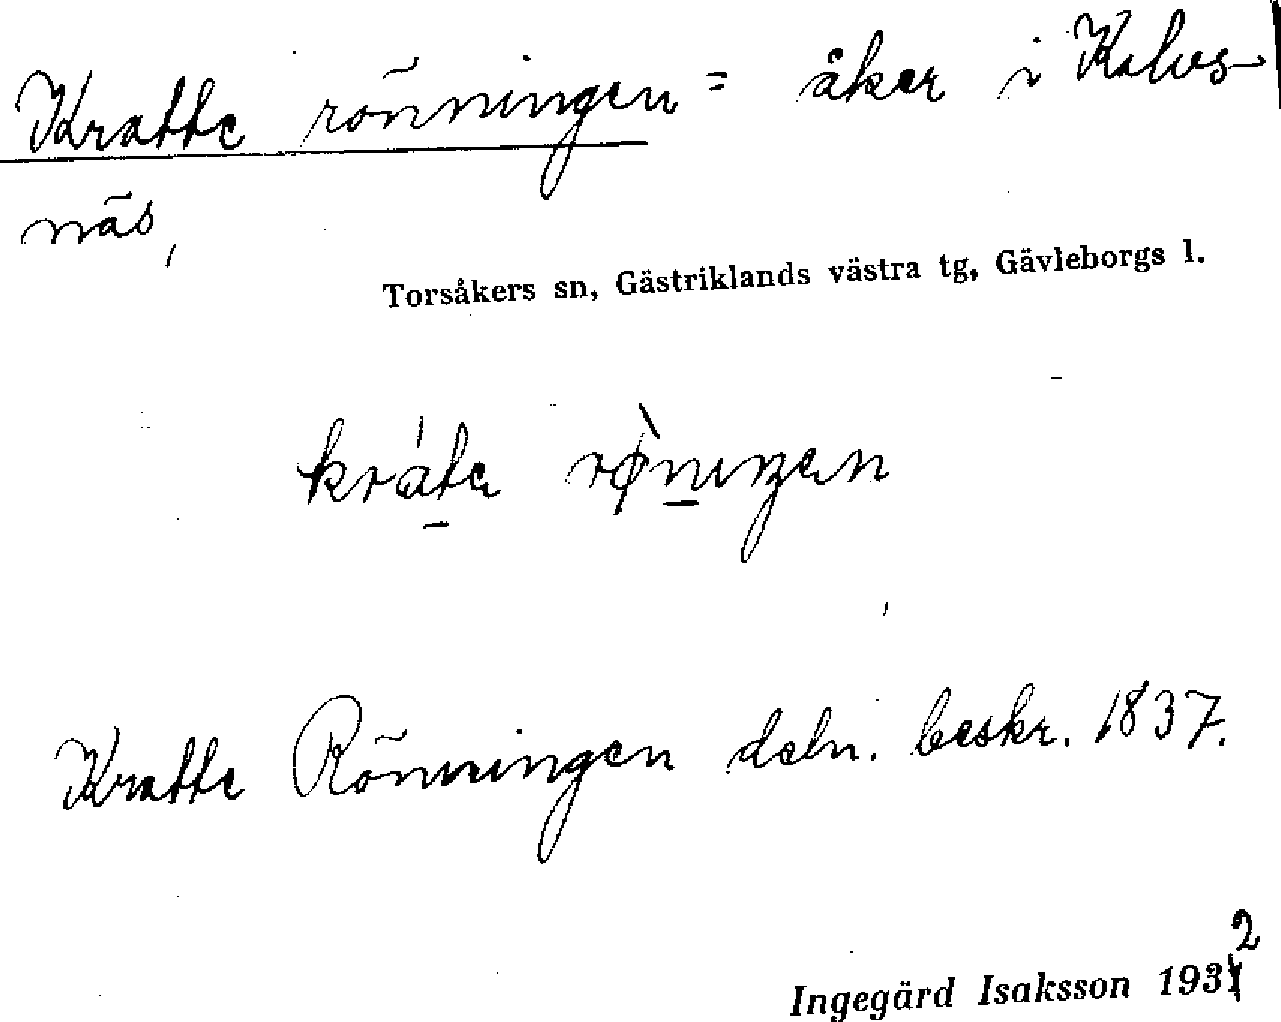 Kratte rönningen = åker i Kalvs-
näs,
Torsåkers sn, Gästriklands västra tg, Gävleborgs l.
kráta rø̀nıŋen
Kratte Rönningen deln. beskr. 1837.
Ingegärd Isaksson 1932